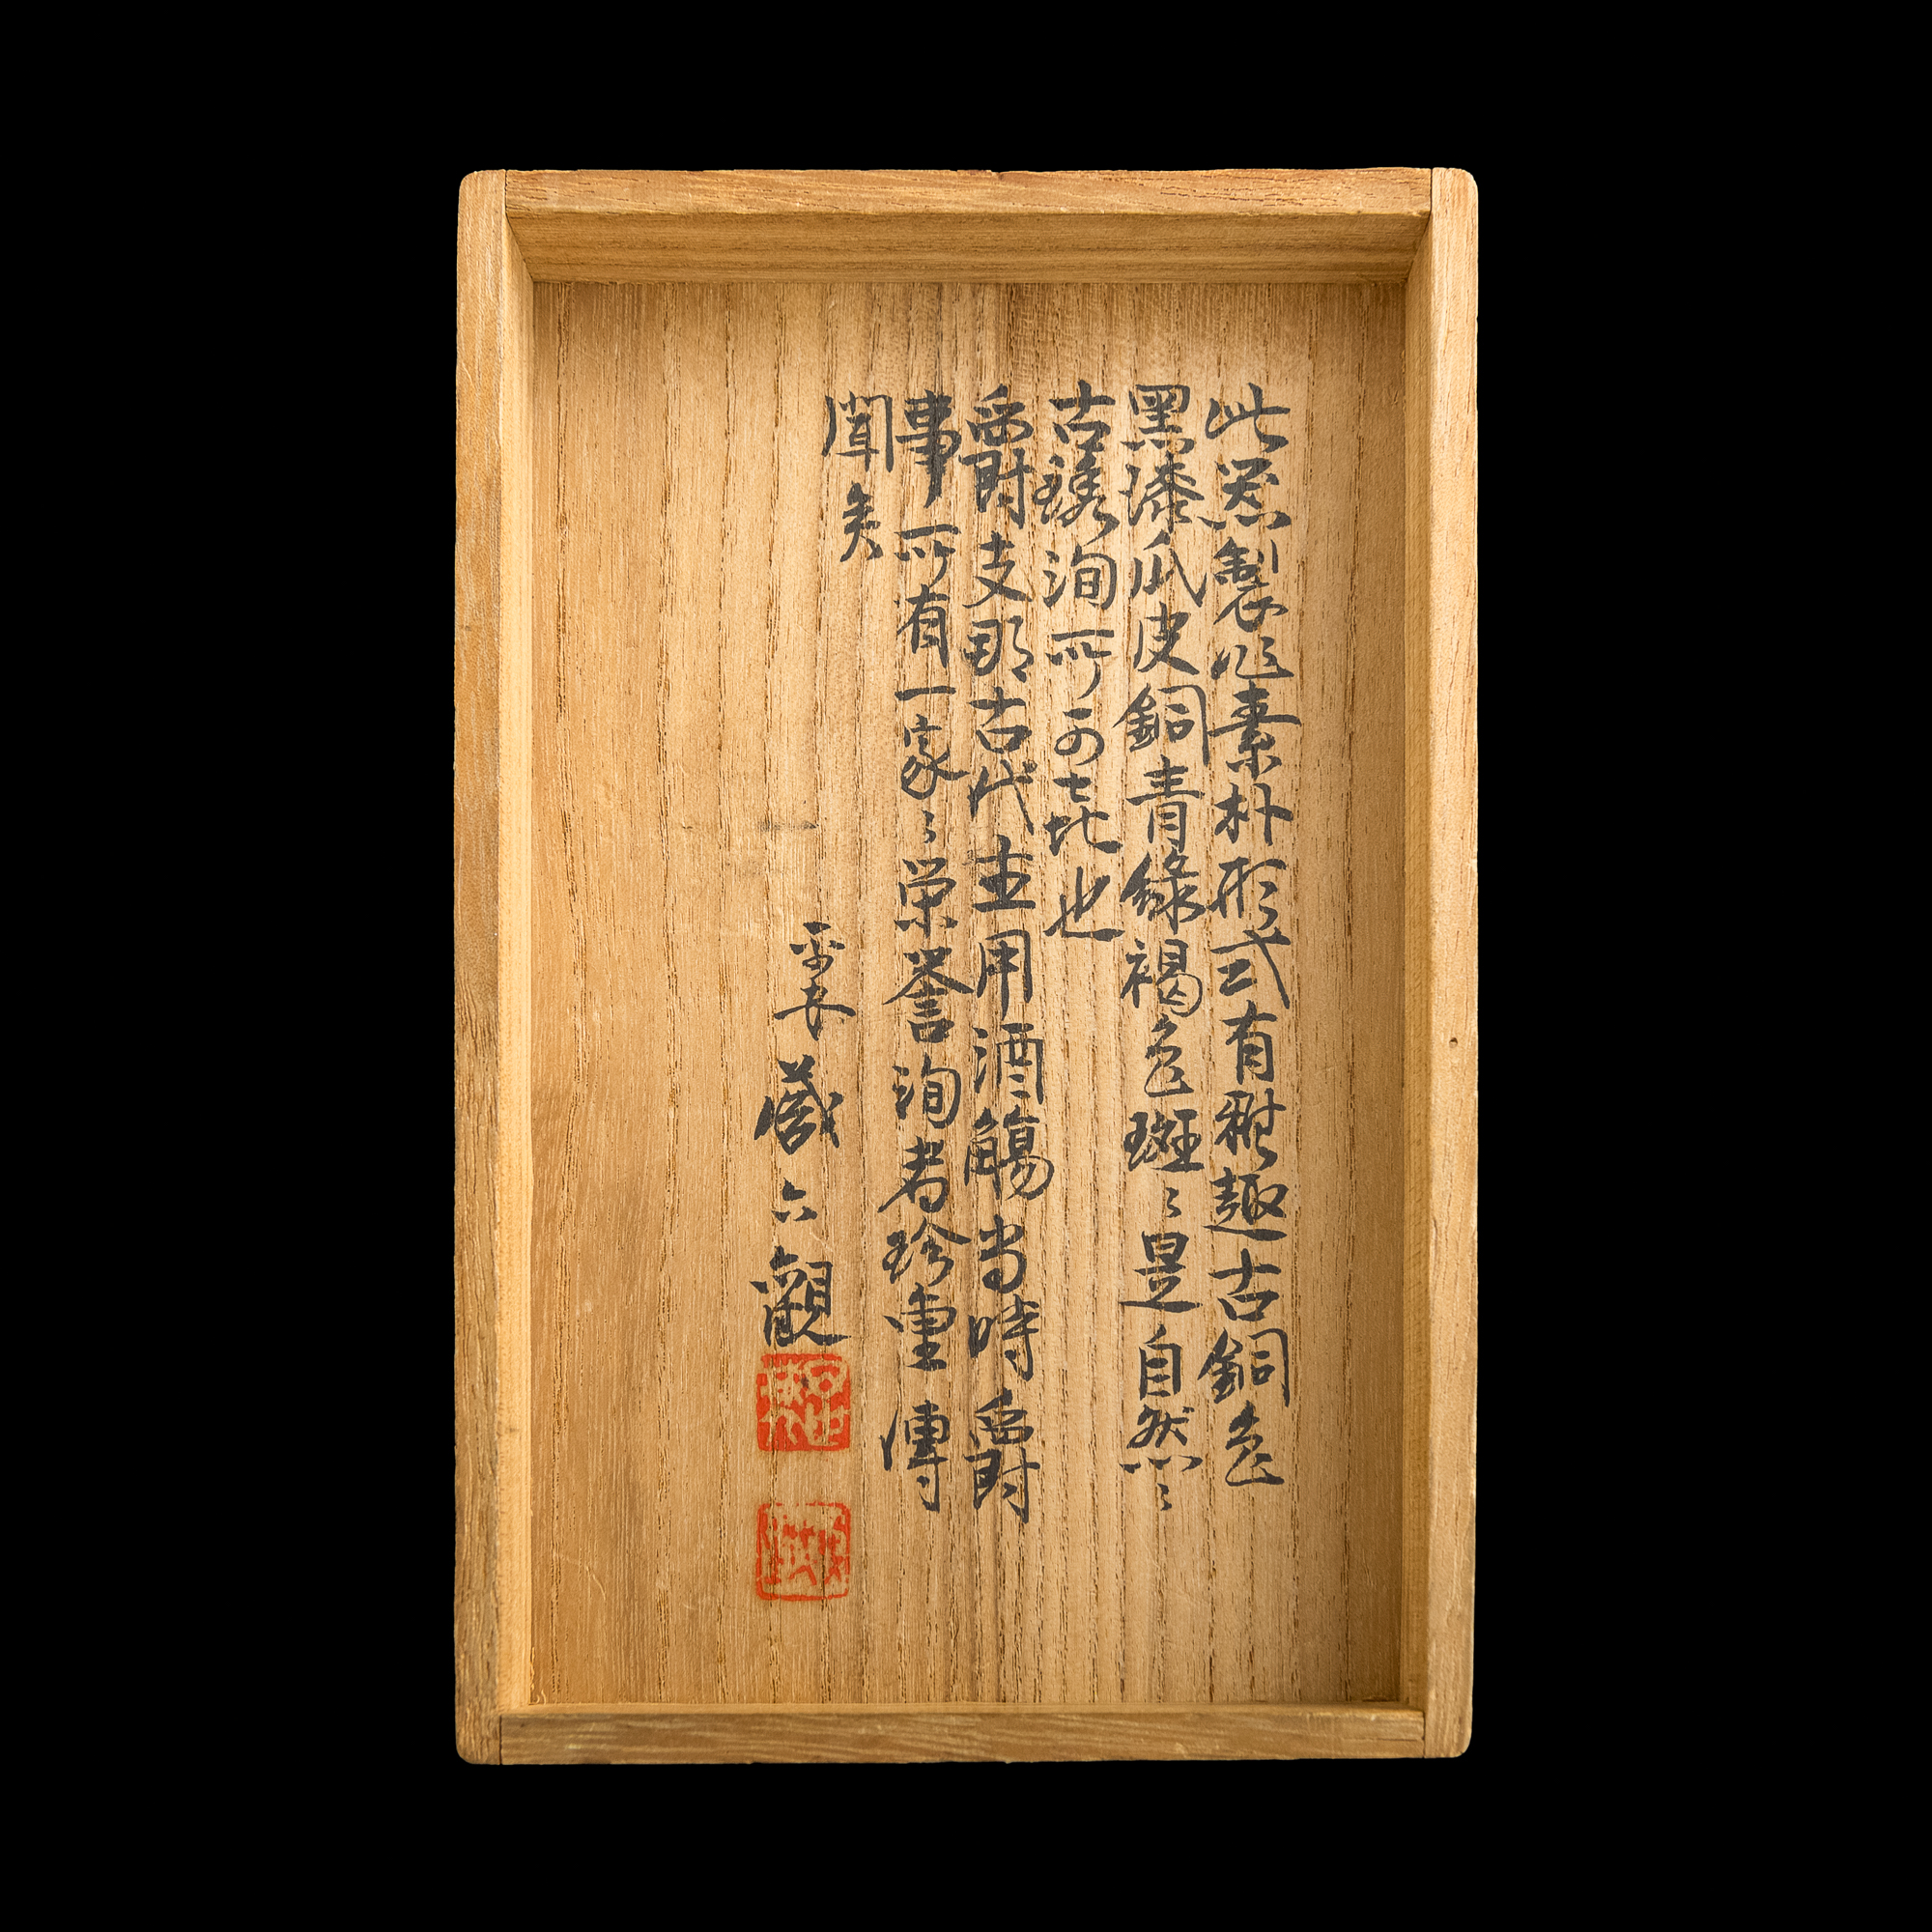 此器製作素朴形式有雅趣古銅色
黒漆瓜皮銅青緑褐色斑〻是自然〻
古銹洵所可㐂也
爵支那古代主用酒觴当時爵
事所有一家〻栄誉洵者珍重傳
聞矣
蔵六観